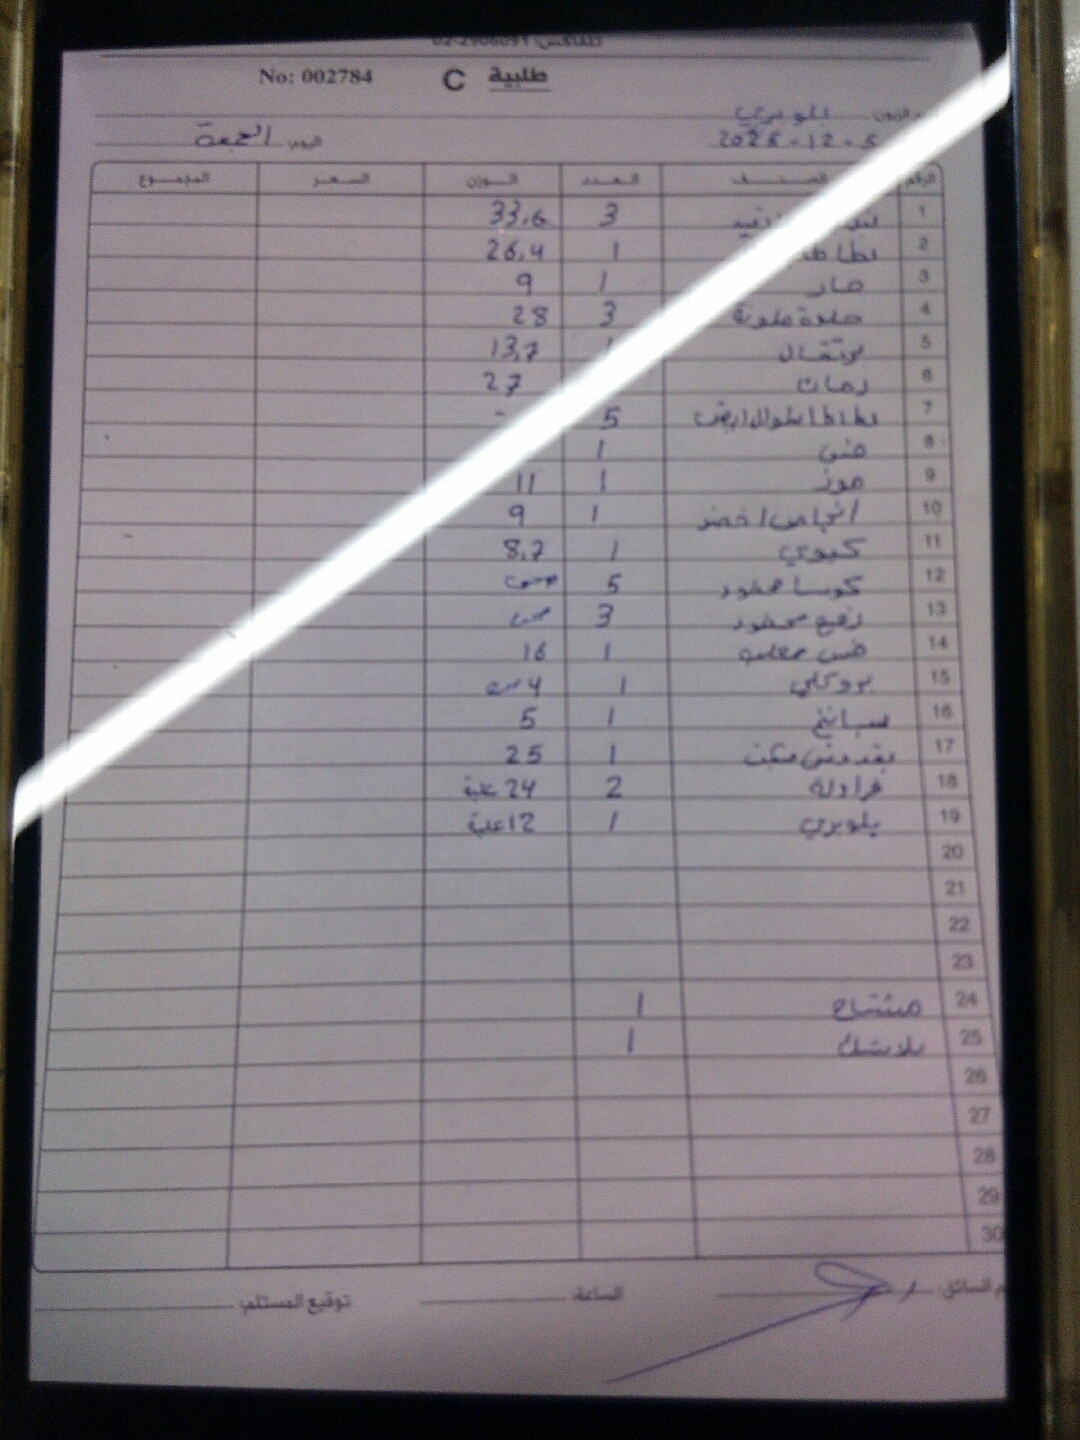 تلفاكس: 02-2906091
طلبية C No: 002784
الزبون: بلوبري
2025-12-5 اليوم: الجمعة
الرقم الصنف العدد الوزن السعر المجموع
1 3 33,6
2 بطاطا 1 26,4
3 1 9
4 حلوة ملونة 3 28
5 برتقال 1 13,7
6 رمان 27
7 بطاطا ابيض 5 -
8 1
9 موز 1 11
10 انجاص اخضر 1 9
11 كيوي 1 8,7
12 كوسا 5
13 3
14 خس 1 16
15 بروكلي 1 4
16 سبانخ 1 5
17 بقدونس 1 25
18 فراولة 2 24 علبة
19 بلوبري 1 12 علبة
20
21
22
23
24 مشتاح 1
25 بلاستك 1
26
27
28
29
30
السائق: الساعة: توقيع المستلم: